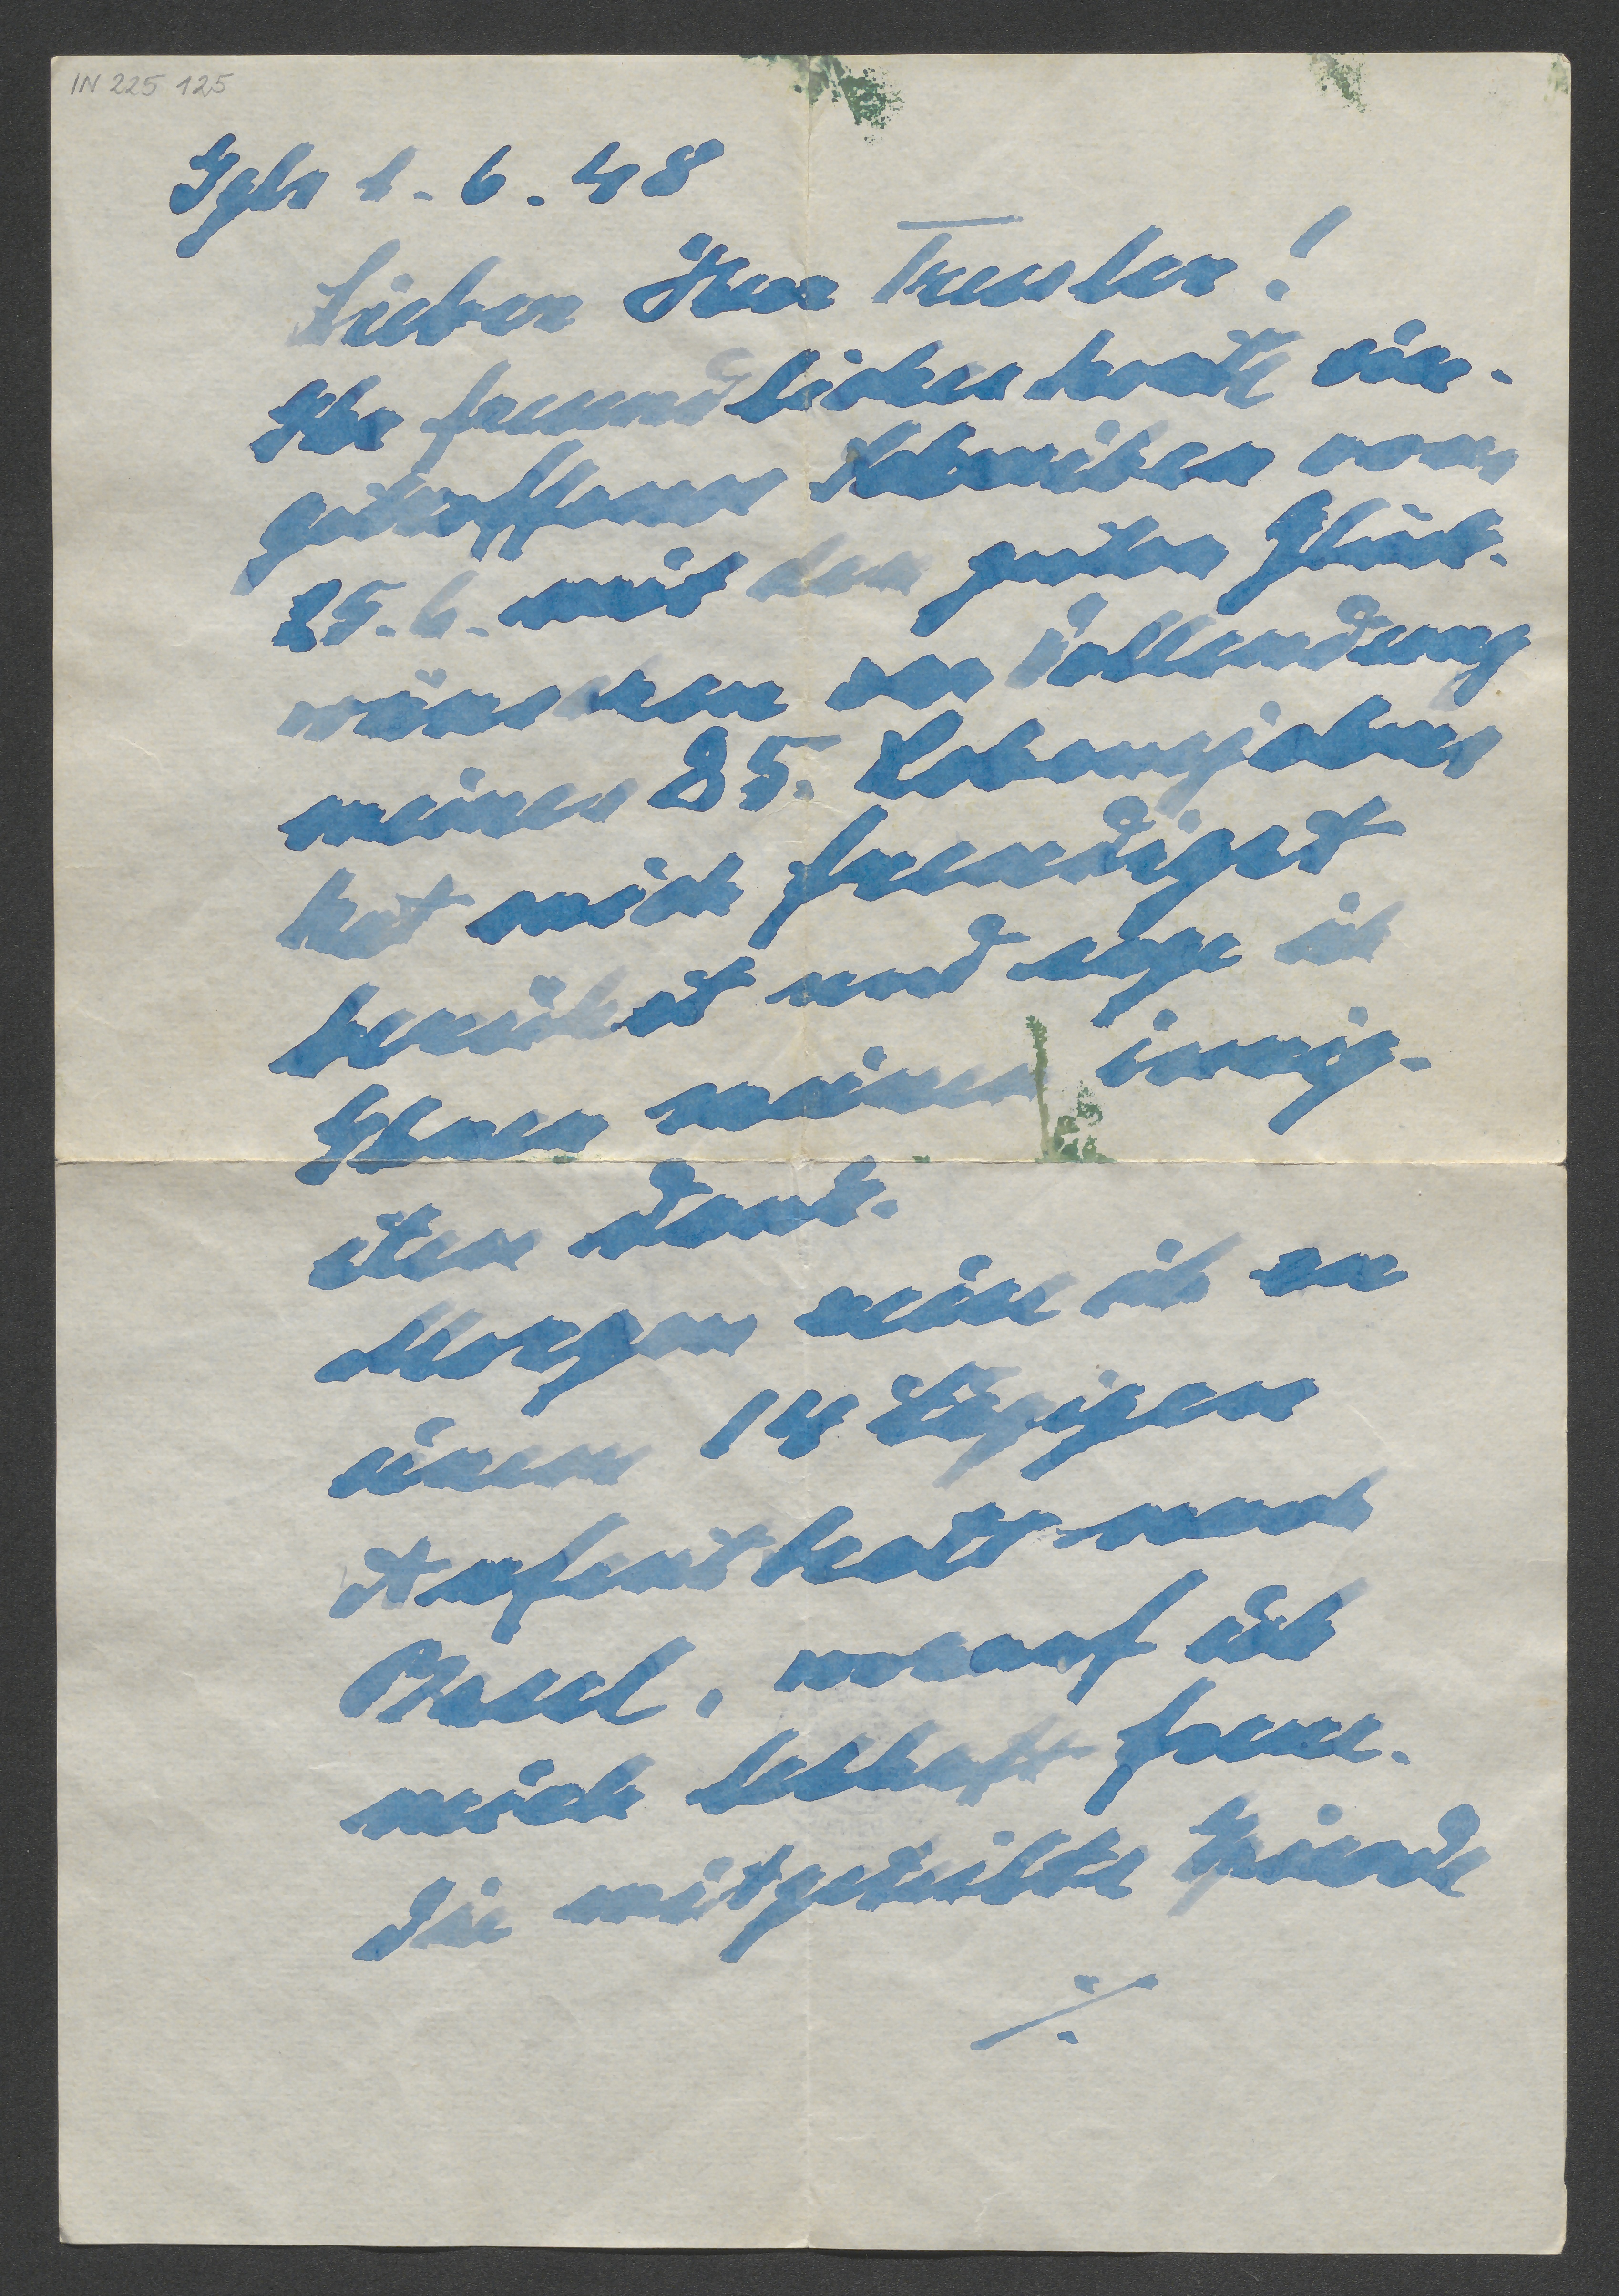 IN 225 125
Igls 1. 6. 48
Lieber Herr Treuler!
Ihr freundliches heute ein-
getroffenes Schreiben vom
25. 6. mit den guten Glück-
wünschen zur Vollendung
meines 85. Lebensjahres
hat mich freudigst
berührt und sage ich
Ihnen meinen innig-
sten Dank.
Morgen reise ich zu
einem 14 tägigen
Aufenthalt nach
Basel, worauf ich
mich lebhaft freue.
Die mitgeteilte
./.